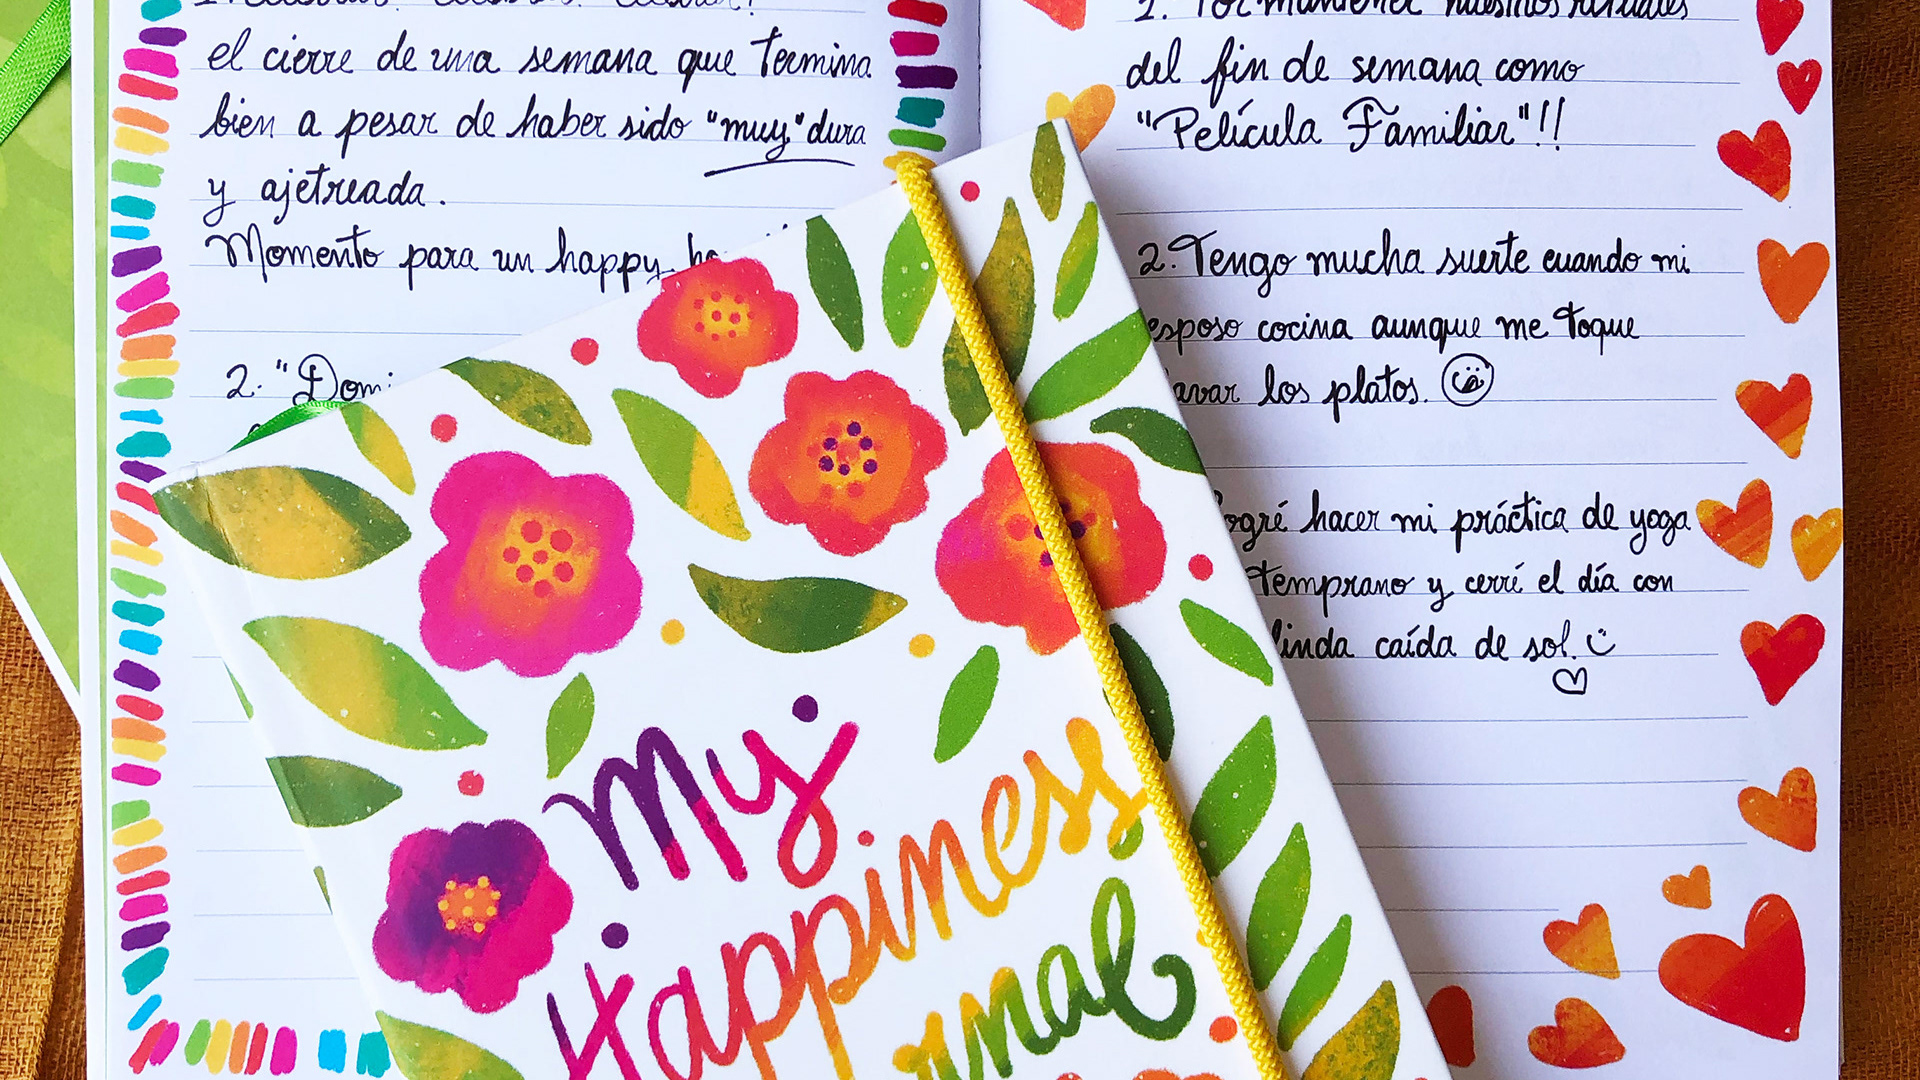 el cierre de una semana que termina
bien a pesar de haber sido "muy" dura
y ajetreada.
Momento para un happy
2. "Domi
1. Por mantener nuestros rituales
del fin de semana como
"Película Familiar"!!
2. Tengo mucha suerte cuando mi
esposo cocina aunque me toque
lavar los platos.
logré hacer mi práctica de yoga
temprano y cerré el día con
linda caída de sol.
My
Happiness
rnal